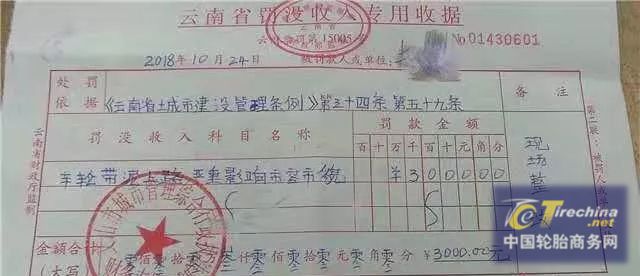 云南省罚没收入专用收据
No 01430601
2018年10月24日 被罚款人或单位：
处罚依据 《云南省土城市建设管理条例》第三十四条 第五十九条
备注
罚没收入科目名称
罚款金额
百十万千百十元角分
车轮带泥上路 严重影响市容市貌
¥300000
现场整
金额合计（大写
零佰零拾零万叁仟零佰零拾零元零角零分 ¥3000.00元
云南省财政厅监制
第二联：被罚人或单
Etirechina.net
中国轮胎商务网